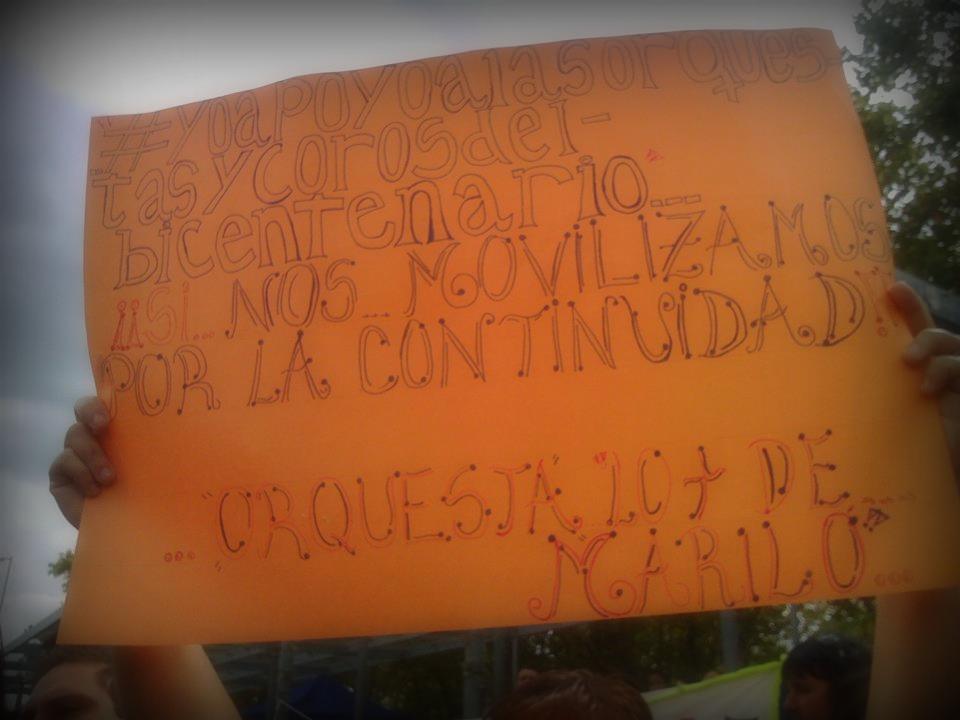 #yoapoyoalasorques-
tasycorosdel-
bicentenario...
¡¡SI... NOS... MOVILIZAMOS
POR LA CONTINUIDAD!!
... "ORQUESTA" "LO + DE...
MARILÓ" ...